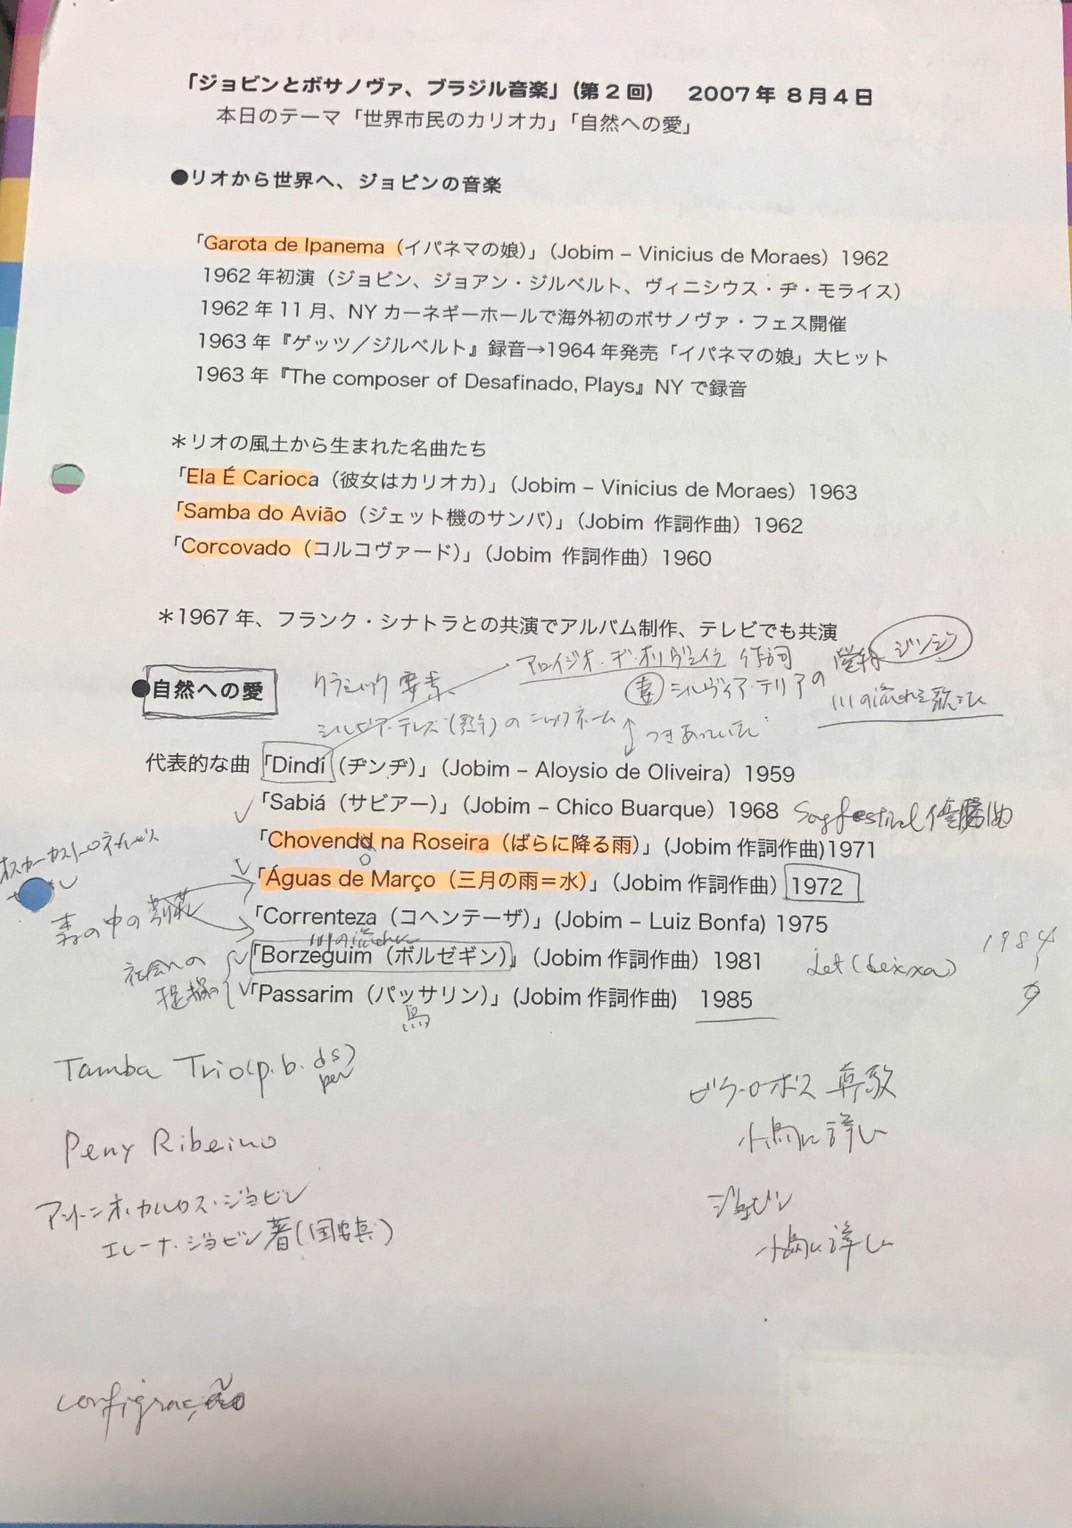 「ジョビンとボサノヴァ、ブラジル音楽」(第2回)　2007年 8月4日
本日のテーマ「世界市民のカリオカ」「自然への愛」
●リオから世界へ、ジョビンの音楽
「Garota de Ipanema（イパネマの娘）」（Jobim – Vinicius de Moraes）1962
1962年初演（ジョビン、ジョアン・ジルベルト、ヴィニシウス・ヂ・モライス）
1962年11月、NYカーネギーホールで海外初のボサノヴァ・フェス開催
1963年『ゲッツ／ジルベルト』録音→1964年発売「イパネマの娘」大ヒット
1963年『The composer of Desafinado, Plays』NYで録音
＊リオの風土から生まれた名曲たち
「Ela É Carioca（彼女はカリオカ）」（Jobim – Vinicius de Moraes）1963
「Samba do Avião（ジェット機のサンバ）」（Jobim 作詞作曲）1962
「Corcovado（コルコヴァード）」（Jobim 作詞作曲）1960
＊1967年、フランク・シナトラとの共演でアルバム制作、テレビでも共演
アロイジオ・デ・オリヴェイラ 作詞
ジンジン
●自然への愛
クラシック 要素
妻 シルヴィア・テリアの
川の流れを歌った
シルビア・テレズ(歌手)のニックネーム
つきあっていた
代表的な曲「Dindi（ヂンヂ）」（Jobim – Aloysio de Oliveira）1959
「Sabiá（サビアー）」（Jobim – Chico Buarque）1968 Song festival 優勝曲
「Chovendo na Roseira（ばらに降る雨）」（Jobim 作詞作曲)1971
「Águas de Março（三月の雨＝水）」（Jobim 作詞作曲）1972
「Correnteza（コヘンテーザ）」（Jobim – Luiz Bonfa) 1975
川の流れ
「Borzeguim（ボルゼギン）」（Jobim 作詞作曲）1981 let (deixa) 1984
社会への
「Passarim（パッサリン）」(Jobim 作詞作曲)　1985
鳥
Tamba Trio (p. b. ds)
per
ビラ・ロボス 尊敬
小鳥に詳しい
Peny Ribeiro
アントニオ・カルロス・ジョビン
エレーナ・ジョビン著(国安真)
ジョビン
小鳥に詳しい
configração